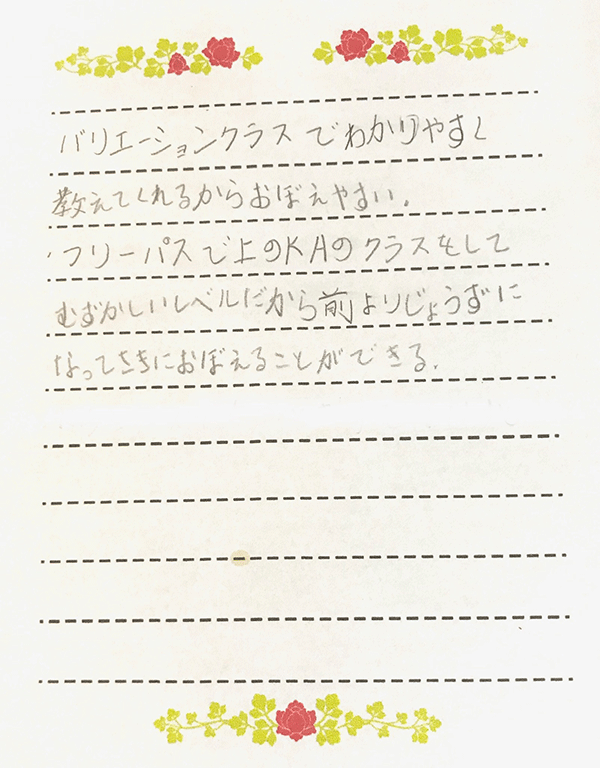 バリエーションクラスでわかりやすく
教えてくれるからおぼえやすい。
・フリーパスで上のKAのクラスをして
むずかしいレベルだから前よりじょうずに
なってさきにおぼえることができる。